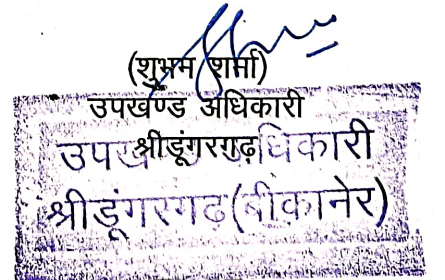 (शुभम शर्मा)
उपखण्ड अधिकारी
श्रीडूंगरगढ़
उपखण्ड अधिकारी
श्रीडूंगरगढ़(बीकानेर)